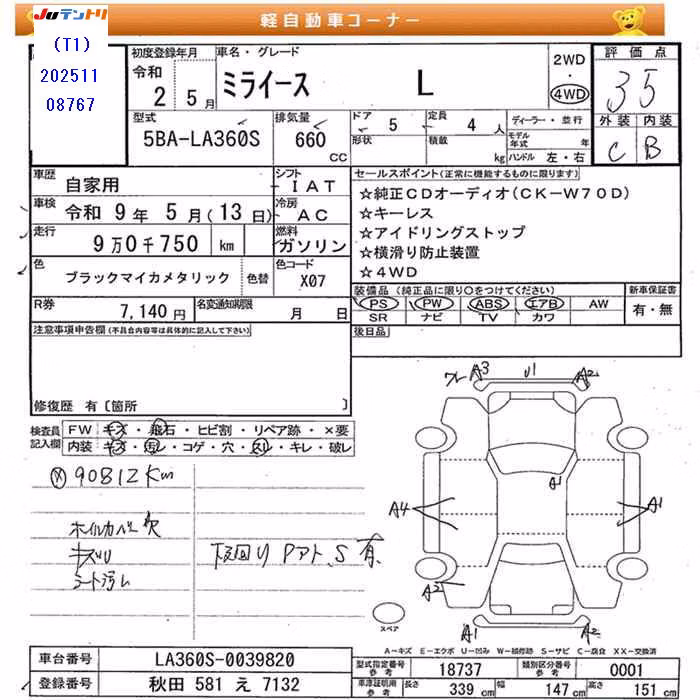 JUテントリ
軽自動車コーナー
(T1)
202511
08767
初度登録年月
令和
2 5月
車名・グレード
ミライース L
2WD
・
4WD
評価点
35
外装 内装
C B
型式
5BA-LA360S
排気量
660
CC
ドア
5
形状
定員
4 人
積載
kg
ディーラー・並行
モデル年式 年
ハンドル 左・右
車歴
自家用
シフト
IAT
車検
令和 9年 5月(13日)
冷房
AC
走行
9万0千750 km
燃料
ガソリン
色
ブラックマイカメタリック
色替
色コード
X07
R券
7,140円
名変通知期限
月 日
セールスポイント(正常に機能するものに限ります)
☆純正CDオーディオ(CK-W70D)
☆キーレス
☆アイドリングストップ
☆横滑り防止装置
☆4WD
装備品(純正品に限り○をつけてください)
PS PW ABS エアB AW
SR ナビ TV カワ
新車保証書
有・無
後日品
注意事項申告欄(不具合内容等は具体的に記入して下さい)
修復歴 有〔箇所 〕
検査員記入欄
FW キズ・飛石・ヒビ割・リペア跡・×要
内装 キズ・汚レ・コゲ・穴・スレ・キレ・破レ
90812Km
ホイルカバー欠
キズU
シート汚レ
下回り Pアト、S有
A3
U1
A2
A1
A4
A1
A2
A1
A2
スペア
A-キズ E-エクボ U-凹み W-補修跡 S-サビ C-腐食 XX-交換済
車台番号
LA360S-0039820
登録番号
秋田 581 え 7132
型式指定番号
参考
18737
類別区分番号
参考
0001
車庫証明用
参考
長さ 339 cm
幅 147 cm
高さ 151 cm